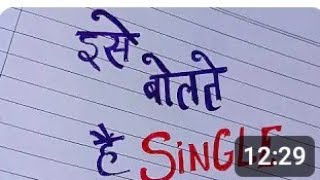 इसे
बोलते
है SiNGLE
12:29